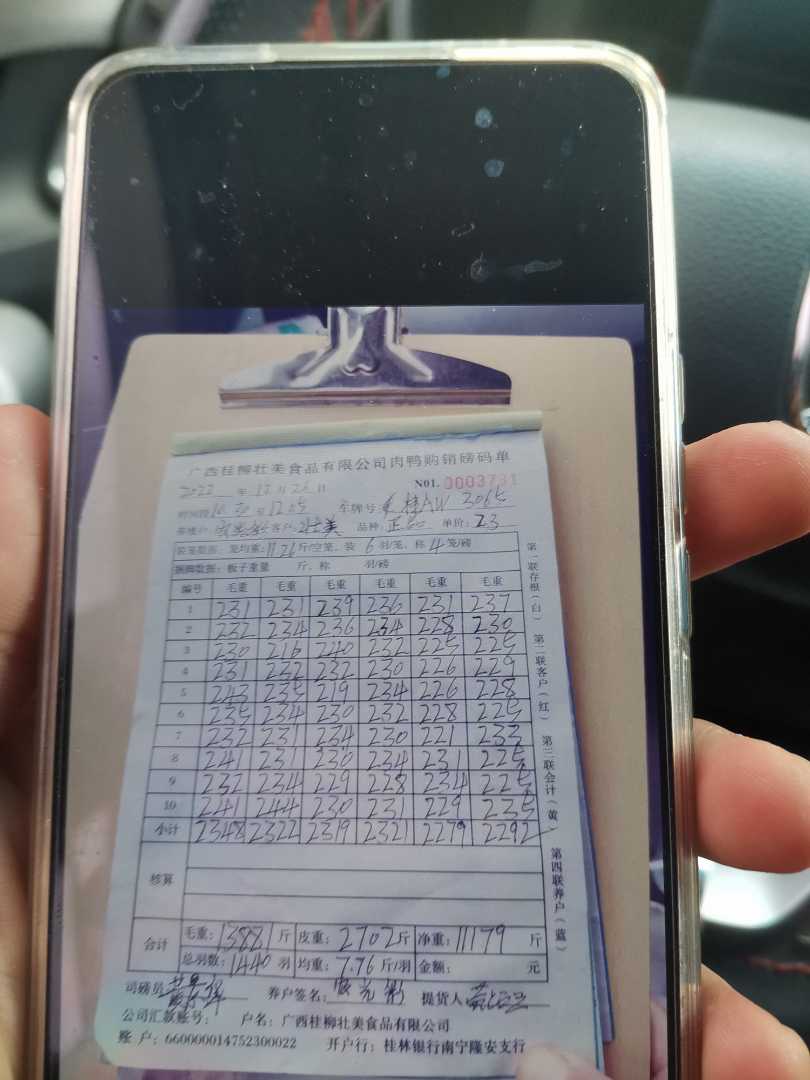 广西桂柳壮美食品有限公司肉鸭购销磅码单
2022 年 12 月 26 日 N01. 0003731
时间段 10:30 至 12:05 车牌号 桂AW 3065
客户: 壮美 品种: 正品 单价: 23
装笼数据: 笼均重: 11.26 斤/空笼, 装 6 羽/笼, 称 4 笼/磅
捆脚数据: 板子重量 斤, 称 羽/磅
编号 毛重 毛重 毛重 毛重 毛重 毛重
1 231 231 239 236 231 237
2 232 234 236 234 228 230
3 230 216 240 232 225 225
4 231 232 232 230 226 229
5 243 235 219 234 226 228
6 235 234 230 232 228 225
7 232 231 234 230 221 233
8 241 231 230 234 231 225
9 232 234 229 228 234 225
10 241 244 230 231 229 235
小计 2348 2322 2319 2321 2279 2292
核算
合计 毛重: 13881 斤 皮重: 2702 斤 净重: 11179 斤
总羽数: 1440 羽 均重: 7.76 斤/羽 金额: 元
司磅员 养户签名: 提货人
公司汇款账号: 户名: 广西桂柳壮美食品有限公司
账 户: 660000014752300022 开户行: 桂林银行南宁隆安支行
第一联存根(白) 第二联客户(红) 第三联会计(黄) 第四联养户(蓝)